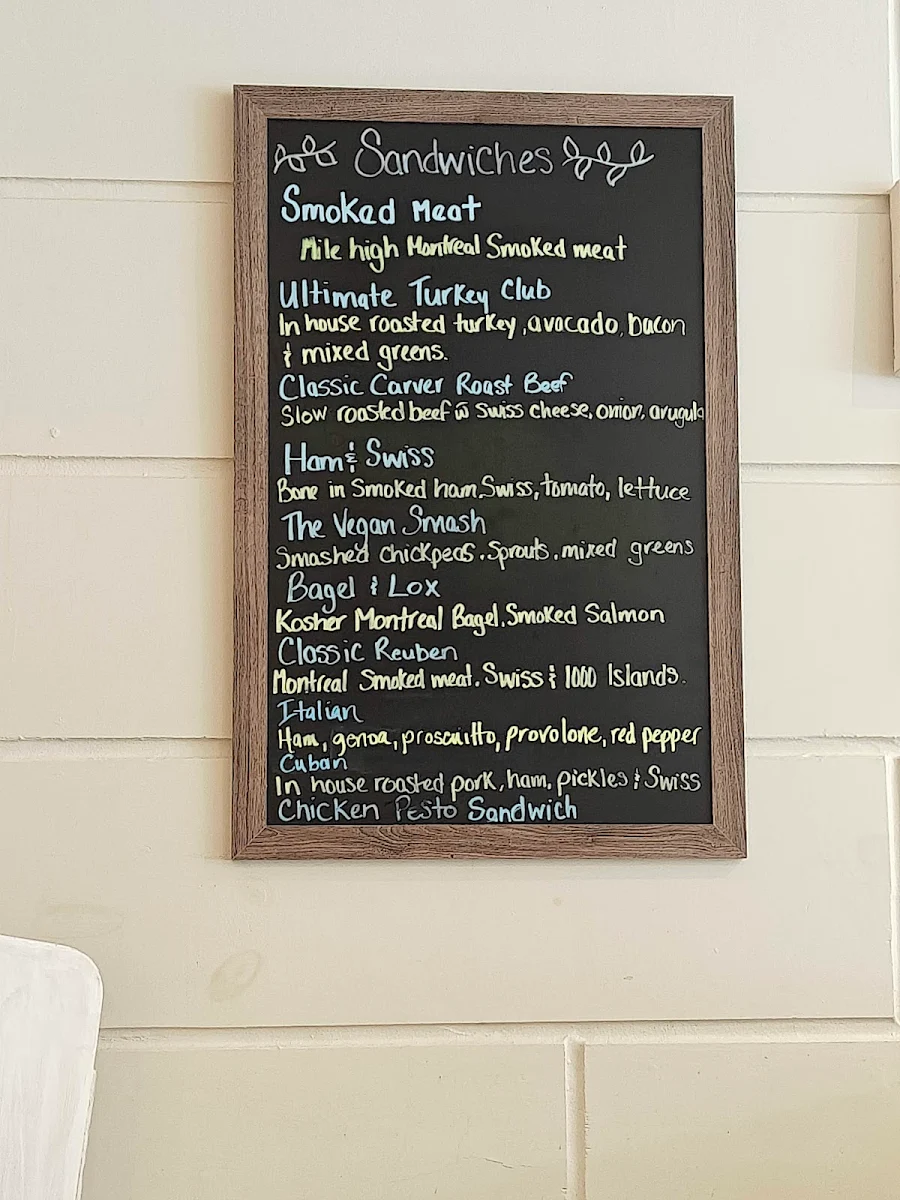 Sandwiches
Smoked Meat
Mile high Montreal Smoked meat
Ultimate Turkey Club
In house roasted turkey, avocado, bacon
& mixed greens.
Classic Carver Roast Beef
Slow roasted beef w swiss cheese, onion, arugula
Ham & Swiss
Bone in Smoked ham, Swiss, tomato, lettuce
The Vegan Smash
Smashed chickpeas, Sprouts, mixed greens
Bagel & Lox
Kosher Montreal Bagel, Smoked Salmon
Classic Reuben
Montreal Smoked meat, Swiss & 1000 Islands.
Italian
Ham, genoa, proscuitto, provolone, red pepper
Cuban
In house roasted pork, ham, pickles & Swiss
Chicken Pesto Sandwich